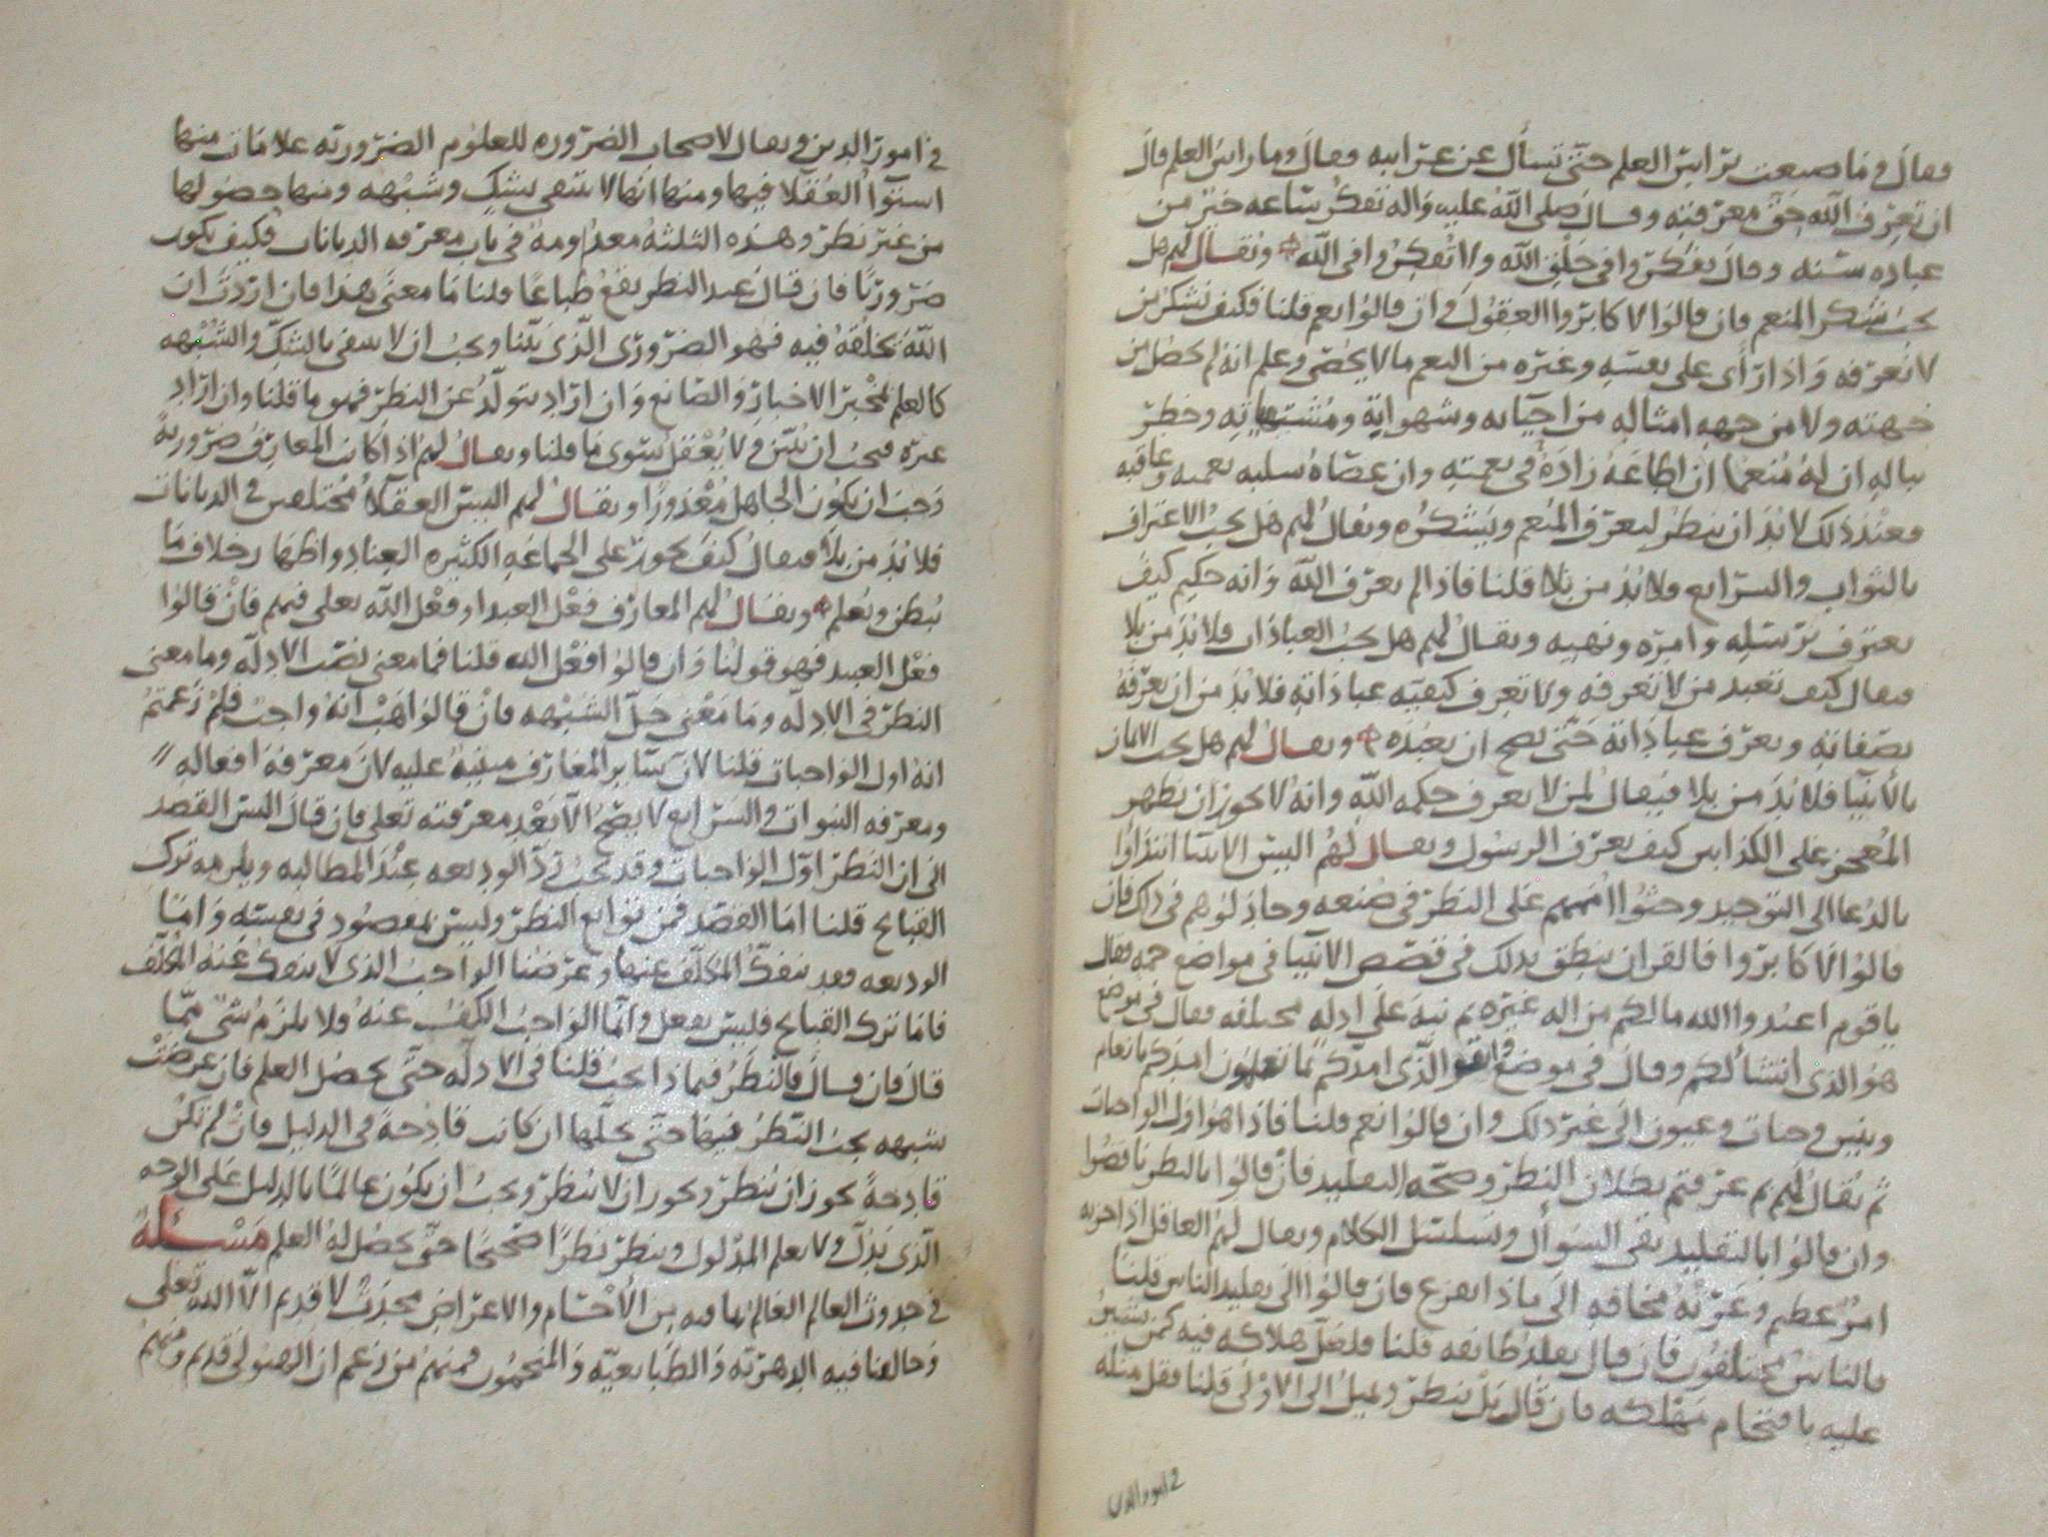 فقال وما صنعت براس العلم حتى تسأل عن غرايبه فقال وما راس العلم قال
ان تعرف الله حق معرفته وقال صلى الله عليه واله تفكر ساعه خير من
عباده سنه وقال تفكروا في خلق الله ولا تفكروا في الله ويقال لهم هل
يجب شكر المنعم فان قالوا لا كابروا العقول وان قالوا نعم قلنا فكيف تشكر من
لا تعرفه واذا رأى على نفسه وغيره من النعم ما لا يحصى وعلم انه لم يحصل من
جهته ولا من جهه امثاله من احيايه وشهواته ومشتهياته وخطر
بباله ان له منعما ان اطاعه زاده في نعمته وان عصاه سلبه نعمه وعاقبه
فعند ذلك لا بد ان ينظر ليعرف المنعم ويشكره ويقال لهم هل يجب الاعتراف
بالثواب والشرايع فلا بد من بلا قلنا فاذا لم يعرف الله وانه حكيم كيف
يعترف برسله وامره ونهيه ويقال لهم هل يجب العبادات فلا بد من بلا
فيقال كيف تعبد من لا تعرفه ولا تعرف كيفيه عباداته فلا بد من ان يعرفه
بصفاته ويعرف عباداته حتى يصح ان يعبده ويقال لهم هل يجب الايمان
بالانبيا فلا بد من بلا فيقال لمن لا يعرف حكمه الله وانه لا يجوز ان يظهر
المعجز على الكذابين كيف يعرف الرسول ويقال لهم اليس الانبيا ابتداوا
بالدعا الى التوحيد وحثوا اممهم على النظر في صنعه وجادلوهم في ذلك فان
قالوا لا كابروا فالقران ينطق بذلك في قصص الانبيا في مواضع جمه فقال
ياقوم اعبدوا الله مالكم من اله غيره ثم نبه على ادله مختلفه فقال في موضع
هو الذي انشأ لكم وقال في موضع واتقوا الذي امدكم بما تعلمون امدكم بانعام
وبنين وجنات وعيون الى غير ذلك وان قالوا نعم قلنا فاذا هو اول الواجبات
ثم يقال لهم بم عرفتم بطلان النظر وصحه التقليد فان قالوا بالنظر ناقضوا
وان قالوا بالتقليد بقي السؤال وتسلسل الكلام ويقال لهم العاقل اذا حزبه
امر عظيم وعرته مخافه الى ماذا يفزع فان قالوا الى تقليد الناس قلنا
فالناس مختلفون فان قال يقلد طايفه قلنا فلعل هلاكه فيه كمن يشير
عليه باقتحام مهلكه فان قال بل ينظر ويميل الى الاولى قلنا فقل مثله
في امور الدين
في امور الدين ويقال لاصحاب الضروره للعلوم الضروريه علامات منها
استوا العقلا فيها ومنها انها لا تنتفي بشك وشبهه ومنها حصولها
من غير نظر وهذه الثلثه معدومه في باب معرفه الديانات فكيف يكون
ضروريا فان قال عند النظر يقع طباعا قلنا ما معنى هذا فان اردت ان
الله يخلقه فيه فهو الضروري الذي بينا ويجب ان لا ينتفي بالشك والشبهه
كالعلم بمخبر الاخبار والصانع وان اراد يتولد عن النظر فهو ما قلنا وان اراد
غيره فيجب ان يبين ولا يعقل سوى ما قلنا ويقال لهم اذا كانت المعارف ضروريه
وجب ان يكون الجاهل معذورا ويقال لهم اليس العقلا مختلفين في الديانات
فلا بد من بلا فيقال كيف يجوز على الجماعه الكثيره العناد واظهار خلاف ما
يبطن ويعلم ويقال لهم المعارف فعل العبد او فعل الله تعلى فيهم فان قالوا
فعل العبد فهو قولنا وان قالوا فعل الله قلنا فما معنى نصب الادله وما معنى
النظر في الادله وما معنى حل الشبهه فان قالوا هب انه واجب فلم زعمتم
انه اول الواجبات قلنا لان ساير المعارف مبنيه عليه لان معرفه افعاله
ومعرفه النبوات والشرايع لا يصح الا بعد معرفته تعلى فان قال اليس القصد
الى ان النظر اول الواجبات وقد يجب رد الوديعه عند المطالبه ويلزمه ترك
القبايح قلنا اما القصد فمن توابع النظر وليس بمقصود في نفسه واما
الوديعه فقد ينفك المكلف عنها وغرضنا الواجب الذي لا ينفك عنه المكلف
فاما ترك القبايح فليس بفعل وانما الواجب الكف عنه ولا يلزم شي مما
قال فان قال فالنظر فيماذا يجب قلنا في الادله حتى يحصل العلم فان عرضت
شبهه يجب النظر فيها حتى يحلها ان كانت قادحه في الدليل فان لم تكن
قادحه يجوز ان ينظر ويجوز ان لا ينظر ويجب ان يكون عالما بالدليل على الوجه
الذي يدل ولا يعلم المدلول وينظر نظرا صحيحا حتى يحصل له العلم مسئلة
في حدوث العالم العالم بما فيه من الاجسام والاعراض محدث لا قديم الا الله تعلى
وخالفنا فيه الدهريه والطبايعيه والمنجمون فمنهم من زعم ان الهيولى قديم ومنهم